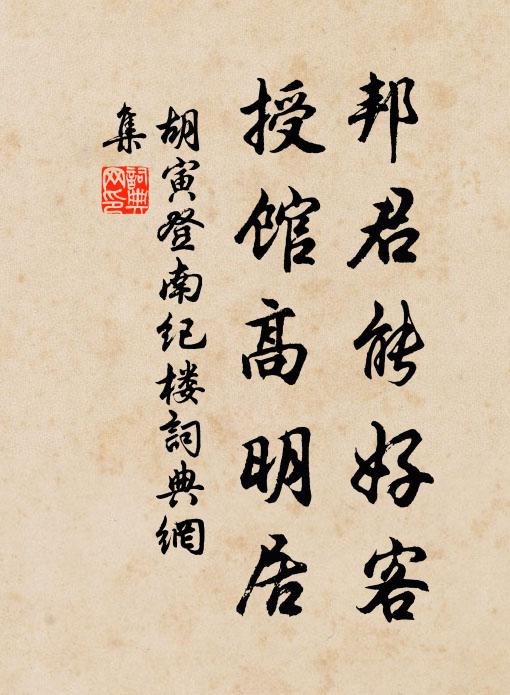 邦君能好客
授馆高明居
胡寅登南纪楼詞典網
集
詞典
网印